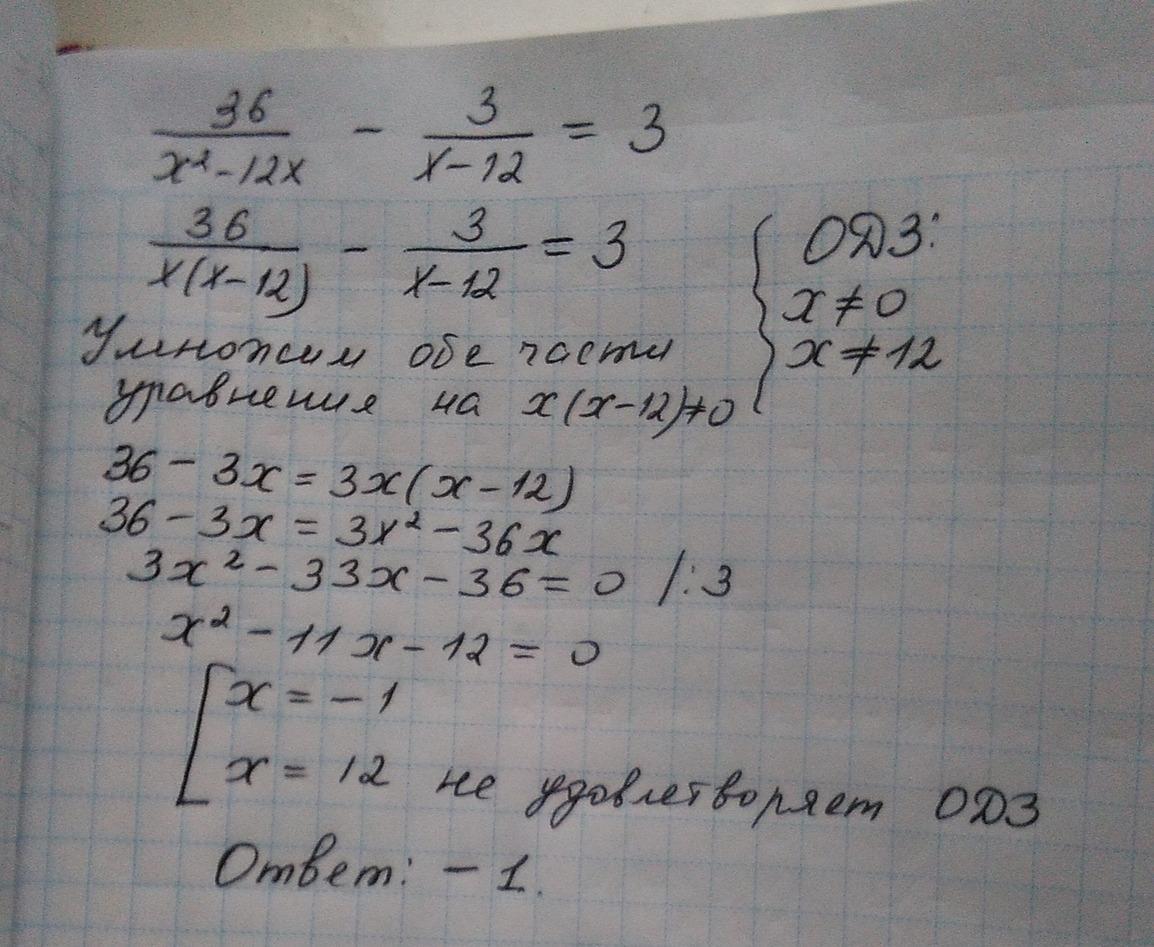 36/(x²-12x) - 3/(x-12) = 3
36/(x(x-12)) - 3/(x-12) = 3
{ ОДЗ:
x≠0
x≠12
Умножим обе части
уравнения на x(x-12)≠0
36-3x=3x(x-12)
36-3x=3x²-36x
3x²-33x-36=0 /:3
x²-11x-12=0
[ x=-1
x=12 не удовлетворяет ОДЗ
Ответ: -1.